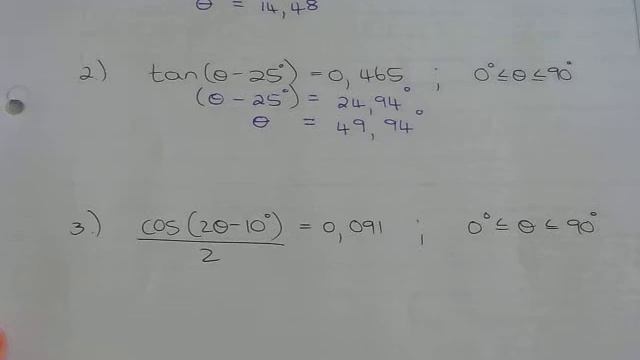 θ = 14,48
2) tan(θ-25°) = 0,465 ; 0° ≤ θ ≤ 90°
(θ-25°) = 24,94°
θ = 49,94°
3.) cos(2θ-10°)/2 = 0,091 ; 0° ≤ θ ≤ 90°